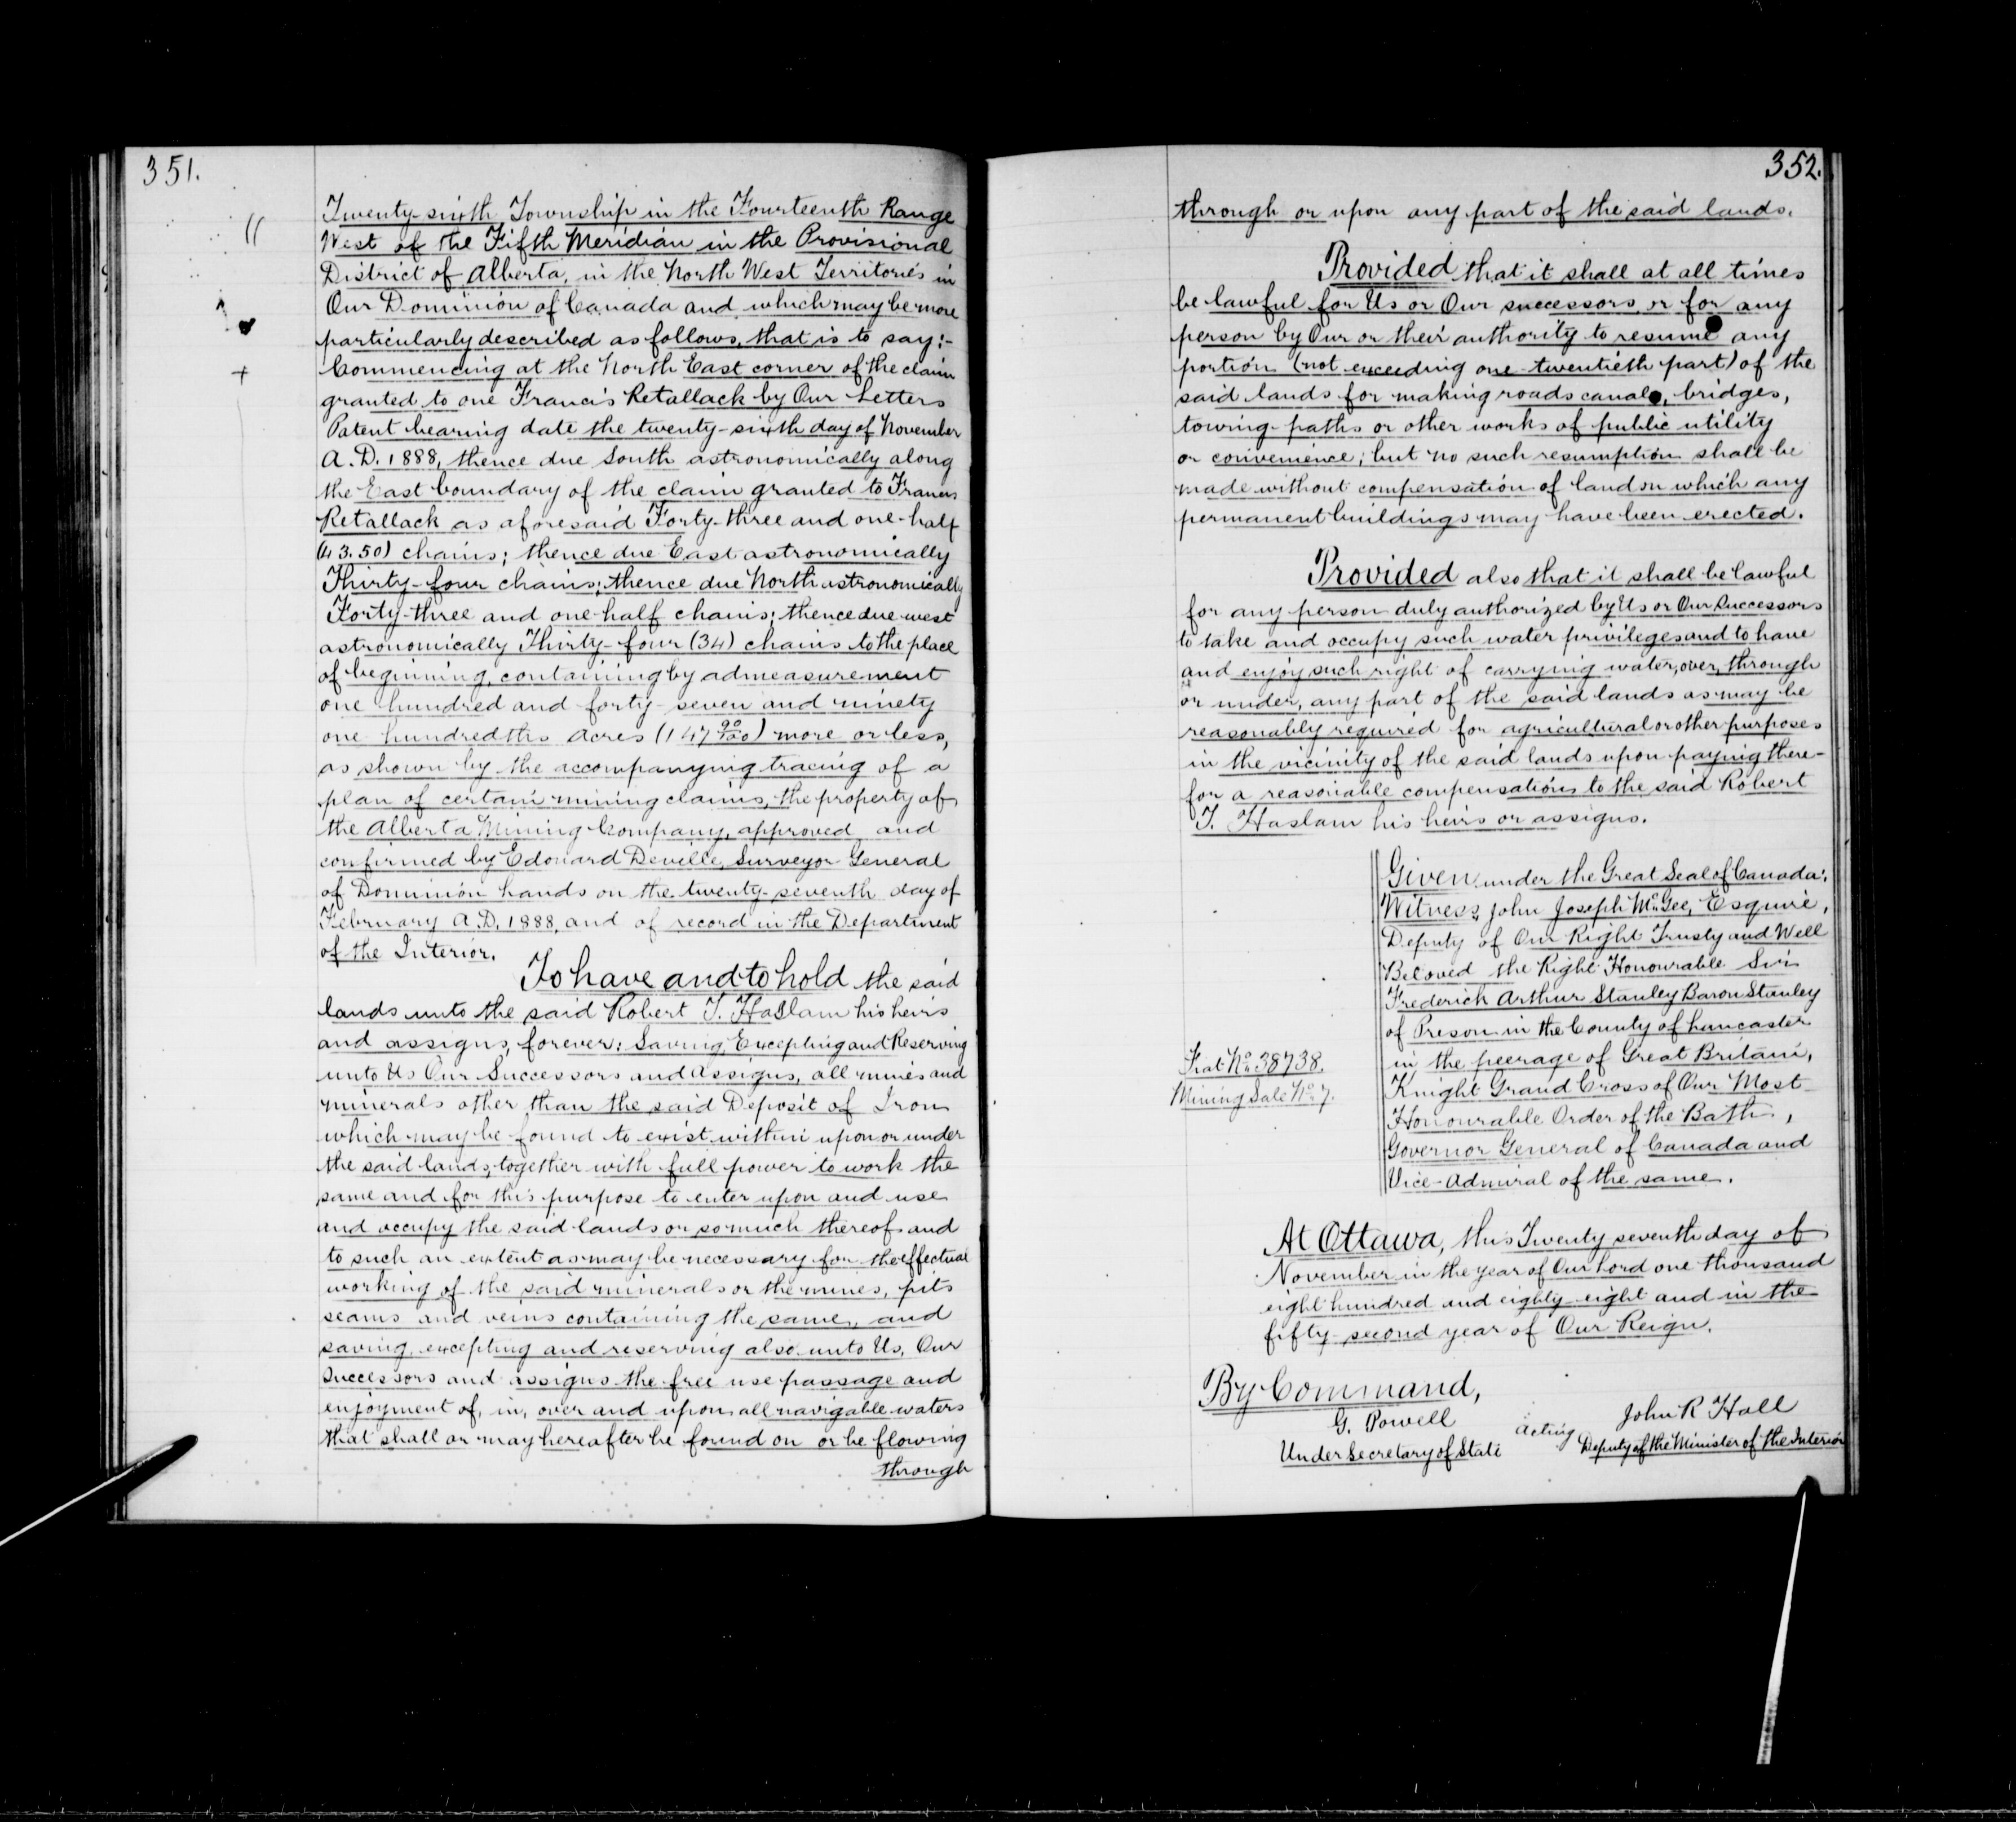 351.
Twenty-sixth Township in the Fourteenth Range
West of the Fifth Meridian in the Provisional
District of Alberta, in the North West Territories in
Our Dominion of Canada and which may be more
particularly described as follows, that is to say:-
Commencing at the North East corner of the claim
granted to one Francis Retallack by Our Letters
Patent bearing date the twenty-sixth day of November
A.D. 1888, thence due South astronomically along
the East boundary of the claim granted to Francis
Retallack as aforesaid Forty-three and one-half
(43.50) chains; thence due East astronomically
Thirty-four chains; thence due North astronomically
Forty-three and one-half chains; thence due west
astronomically Thirty-four (34) chains to the place
of beginning, containing by admeasurement
one hundred and forty-seven and ninety
one hundredths acres (147 90/100) more or less,
as shown by the accompanying tracing of a
plan of certain mining claims, the property of
the Alberta Mining Company, approved and
confirmed by Edouard Deville, Surveyor General
of Dominion Lands on the twenty-seventh day of
February A.D. 1888, and of record in the Department
of the Interior.
To have and to hold the said
lands unto the said Robert T. Haslam his heirs
and assigns, forever: Saving, Excepting and Reserving
unto Us Our Successors and Assigns, all mines and
minerals other than the said Deposit of Iron
which may be found to exist within upon or under
the said lands, together with full power to work the
same and for this purpose to enter upon and use
and occupy the said lands or so much thereof and
to such an extent as may be necessary for the effectual
working of the said minerals or the mines, pits
seams and veins containing the same, and
saving, excepting and reserving also unto Us, Our
Successors and assigns the free use passage and
enjoyment of, in, over and upon all navigable waters
that shall or may hereafter be found on or be flowing
through
352.
through or upon any part of the said lands.
Provided that it shall at all times
be lawful for Us or Our successors, or for any
person by Our or their authority to resume any
portion (not exceeding one-twentieth part) of the
said lands for making roads canals, bridges,
towing-paths or other works of public utility
or convenience; but no such resumption shall be
made without compensation of land on which any
permanent buildings may have been erected.
Provided also that it shall be lawful
for any person duly authorized by Us or Our Successors
to take and occupy such water privileges and to have
and enjoy such right of carrying water, over, through
or under, any part of the said lands as may be
reasonably required for agricultural or other purposes
in the vicinity of the said lands upon paying there-
for a reasonable compensation to the said Robert
T. Haslam his heirs or assigns.
Given under the Great Seal of Canada:
Witness, John Joseph McGee, Esquire,
Deputy of Our Right Trusty and Well
Beloved the Right Honourable Sir
Frederick Arthur Stanley Baron Stanley
of Preson in the County of Lancaster
in the peerage of Great Britain,
Knight Grand Cross of Our Most
Honourable Order of the Bath,
Governor General of Canada and
Vice-Admiral of the same.
Fiat No 38738.
Mining Sale No 7.
At Ottawa, this Twenty seventh day of
November in the year of Our Lord one thousand
eight hundred and eighty-eight and in the
fifty-second year of Our Reign.
By Command,
G. Powell
Under Secretary of State
John R Hall
Acting Deputy of the Minister of the Interior